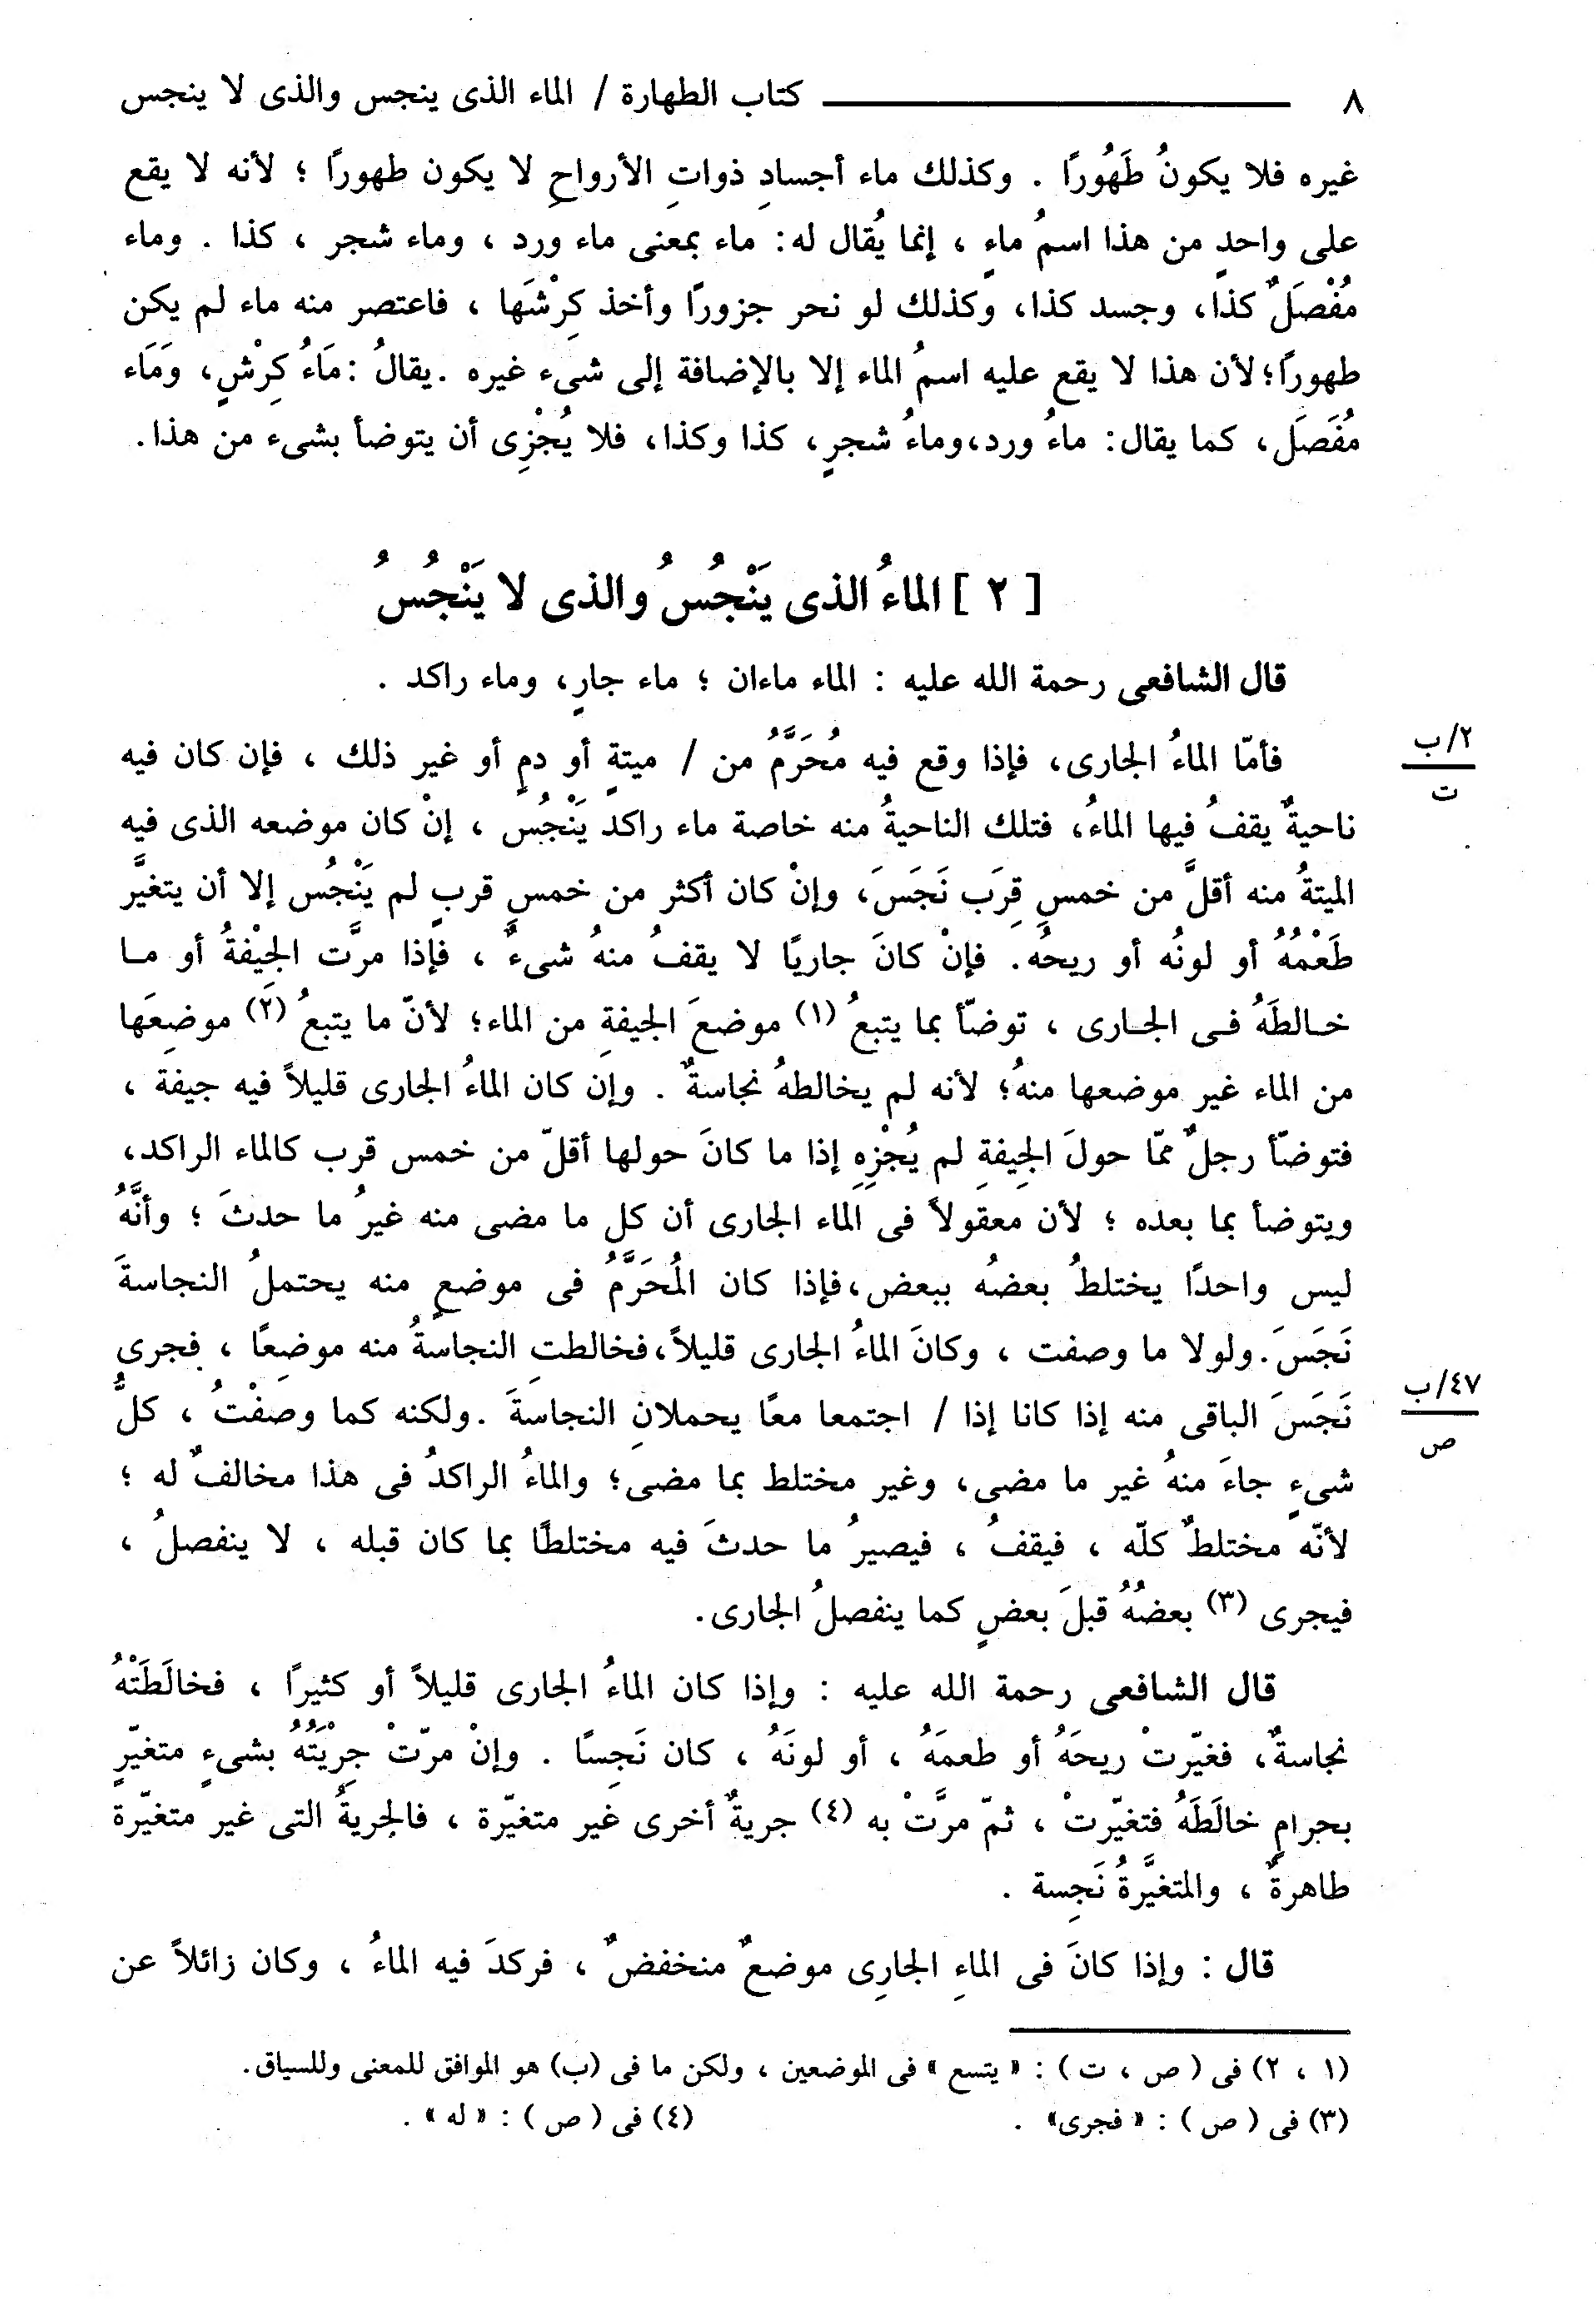 ٨ ــــــــــــ كتاب الطهارة / الماء الذى ينجس والذى لا ينجس
غيره فلا يكونُ طَهُورًا . وكذلك ماء أجسادِ ذواتِ الأرواحِ لا يكون طهورًا ؛ لأنه لا يقع
على واحدٍ من هذا اسمُ ماءٍ ، إنما يُقال له: ماء بمعنى ماء ورد ، وماء شجر ، كذا . وماء
مُفْصَلٌ كذا، وجسد كذا، وكذلك لو نحر جزورًا وأخذ كِرْشَها ، فاعتصر منه ماء لم يكن
طهورًا؛لأن هذا لا يقع عليه اسمُ الماء إلا بالإضافة إلى شىء غيره .يقالُ :مَاءُ كِرْشٍ، وَمَاء
مُفَصَل، كما يقال: ماءُ ورد،وماءُ شجرٍ، كذا وكذا، فلا يُجْزِى أن يتوضأ بشىء من هذا.
[ ٢ ] الماءُ الذى يَنْجُسُ والذى لا يَنْجُسُ
قال الشافعى رحمة الله عليه : الماء ماءان ؛ ماء جارٍ، وماء راكد .
فأمّا الماءُ الجارى، فإذا وقع فيه مُحَرَّمُ من / ميتةٍ أو دمٍ أو غير ذلك ، فإن كان فيه
٢/ب
ت
ناحيةٌ يقفُ فيها الماءُ، فتلك الناحيةُ منه خاصة ماء راكد يَنْجُس ، إنْ كان موضعه الذى فيه
الميتةُ منه أقلَّ من خمسِ قِرَب نَجَسَ، وإنْ كان أكثر من خمسِ قربٍ لم يَنْجُس إلا أن يتغيَّر
طَعْمُهُ أو لونُه أو ريحُه. فإنْ كانَ جاريًا لا يقفُ منهُ شىءٌ ، فإذا مرَّت الجِيْفةُ أو مـا
خـالطَهُ فـى الجـارى ، توضّأ بما يتبعُ (١) موضعَ الجيفةِ من الماء؛ لأنّ ما يتبعُ (٢) موضِعَها
من الماء غير موضعها منهُ؛ لأنه لم يخالطهُ نجاسةٌ . وإن كان الماءُ الجارى قليلاً فيه جيفة ،
فتوضّأ رجلٌ ممّا حولَ الجِيفةِ لم يُجْزِهِ إذا ما كانَ حولها أقلّ من خمس قرب كالماء الراكد،
ويتوضأ بما بعده ؛ لأن معقولاً فى الماء الجارى أن كل ما مضى منه غيرُ ما حدثَ ؛ وأنَّهُ
ليس واحدًا يختلطُ بعضُه ببعض،فإذا كان المُحَرَّمُ فى موضعٍ منه يحتملُ النجاسةَ
نَجَسَ.ولولا ما وصفت ، وكانَ الماءُ الجارى قليلاً،فخالطتِ النجاسةُ منه موضِعًا ، فجرى
نَجَسَ الباقى منه إذا كانا إذا / اجتمعا معًا يحملانِ النجاسةَ .ولكنه كما وصفْتُ ، كلُّ
٤٧/ب
ص
شىءٍ جاءَ منهُ غير ما مضى، وغير مختلط بما مضى؛ والماءُ الراكدُ فى هذا مخالفٌ له ؛
لأنّه مختلطٌ كلّه ، فيقفُ ، فيصيرُ ما حدثَ فيه مختلطًا بما كان قبله ، لا ينفصلُ ،
فيجرى (٣) بعضُهُ قبلَ بعضٍ كما ينفصلُ الجارى.
قال الشافعى رحمة الله عليه : وإذا كان الماءُ الجارى قليلاً أو كثيرًا ، فخالَطَتْهُ
نجاسةٌ، فغيّرتْ ريحَهُ أو طعمَهُ ، أو لونَهُ ، كان نَجِسًا . وإنْ مرّتْ جِرْيَتُهُ بشىءٍ متغيّرٍ
بحرامٍ خالَطَهُ فتغيّرتْ ، ثمّ مرَّتْ به (٤) جريةٌ أخرى غير متغيّرة ، فالجِريةُ التى غير متغيّرة
طاهرةٌ ، والمتغيَّرةُ نَجِسة .
قال : وإذا كانَ فى الماءِ الجارِى موضعٌ منخفضٌ ، فركدَ فيه الماءُ ، وكان زائلاً عن
(١ ، ٢) فى ( ص ، ت ) : « يتسع » فى الموضعين ، ولكن ما فى (ب) هو الموافق للمعنى وللسياق.
(٣) فى ( ص ) : « فجرى» . (٤) فى ( ص ) : « له » .